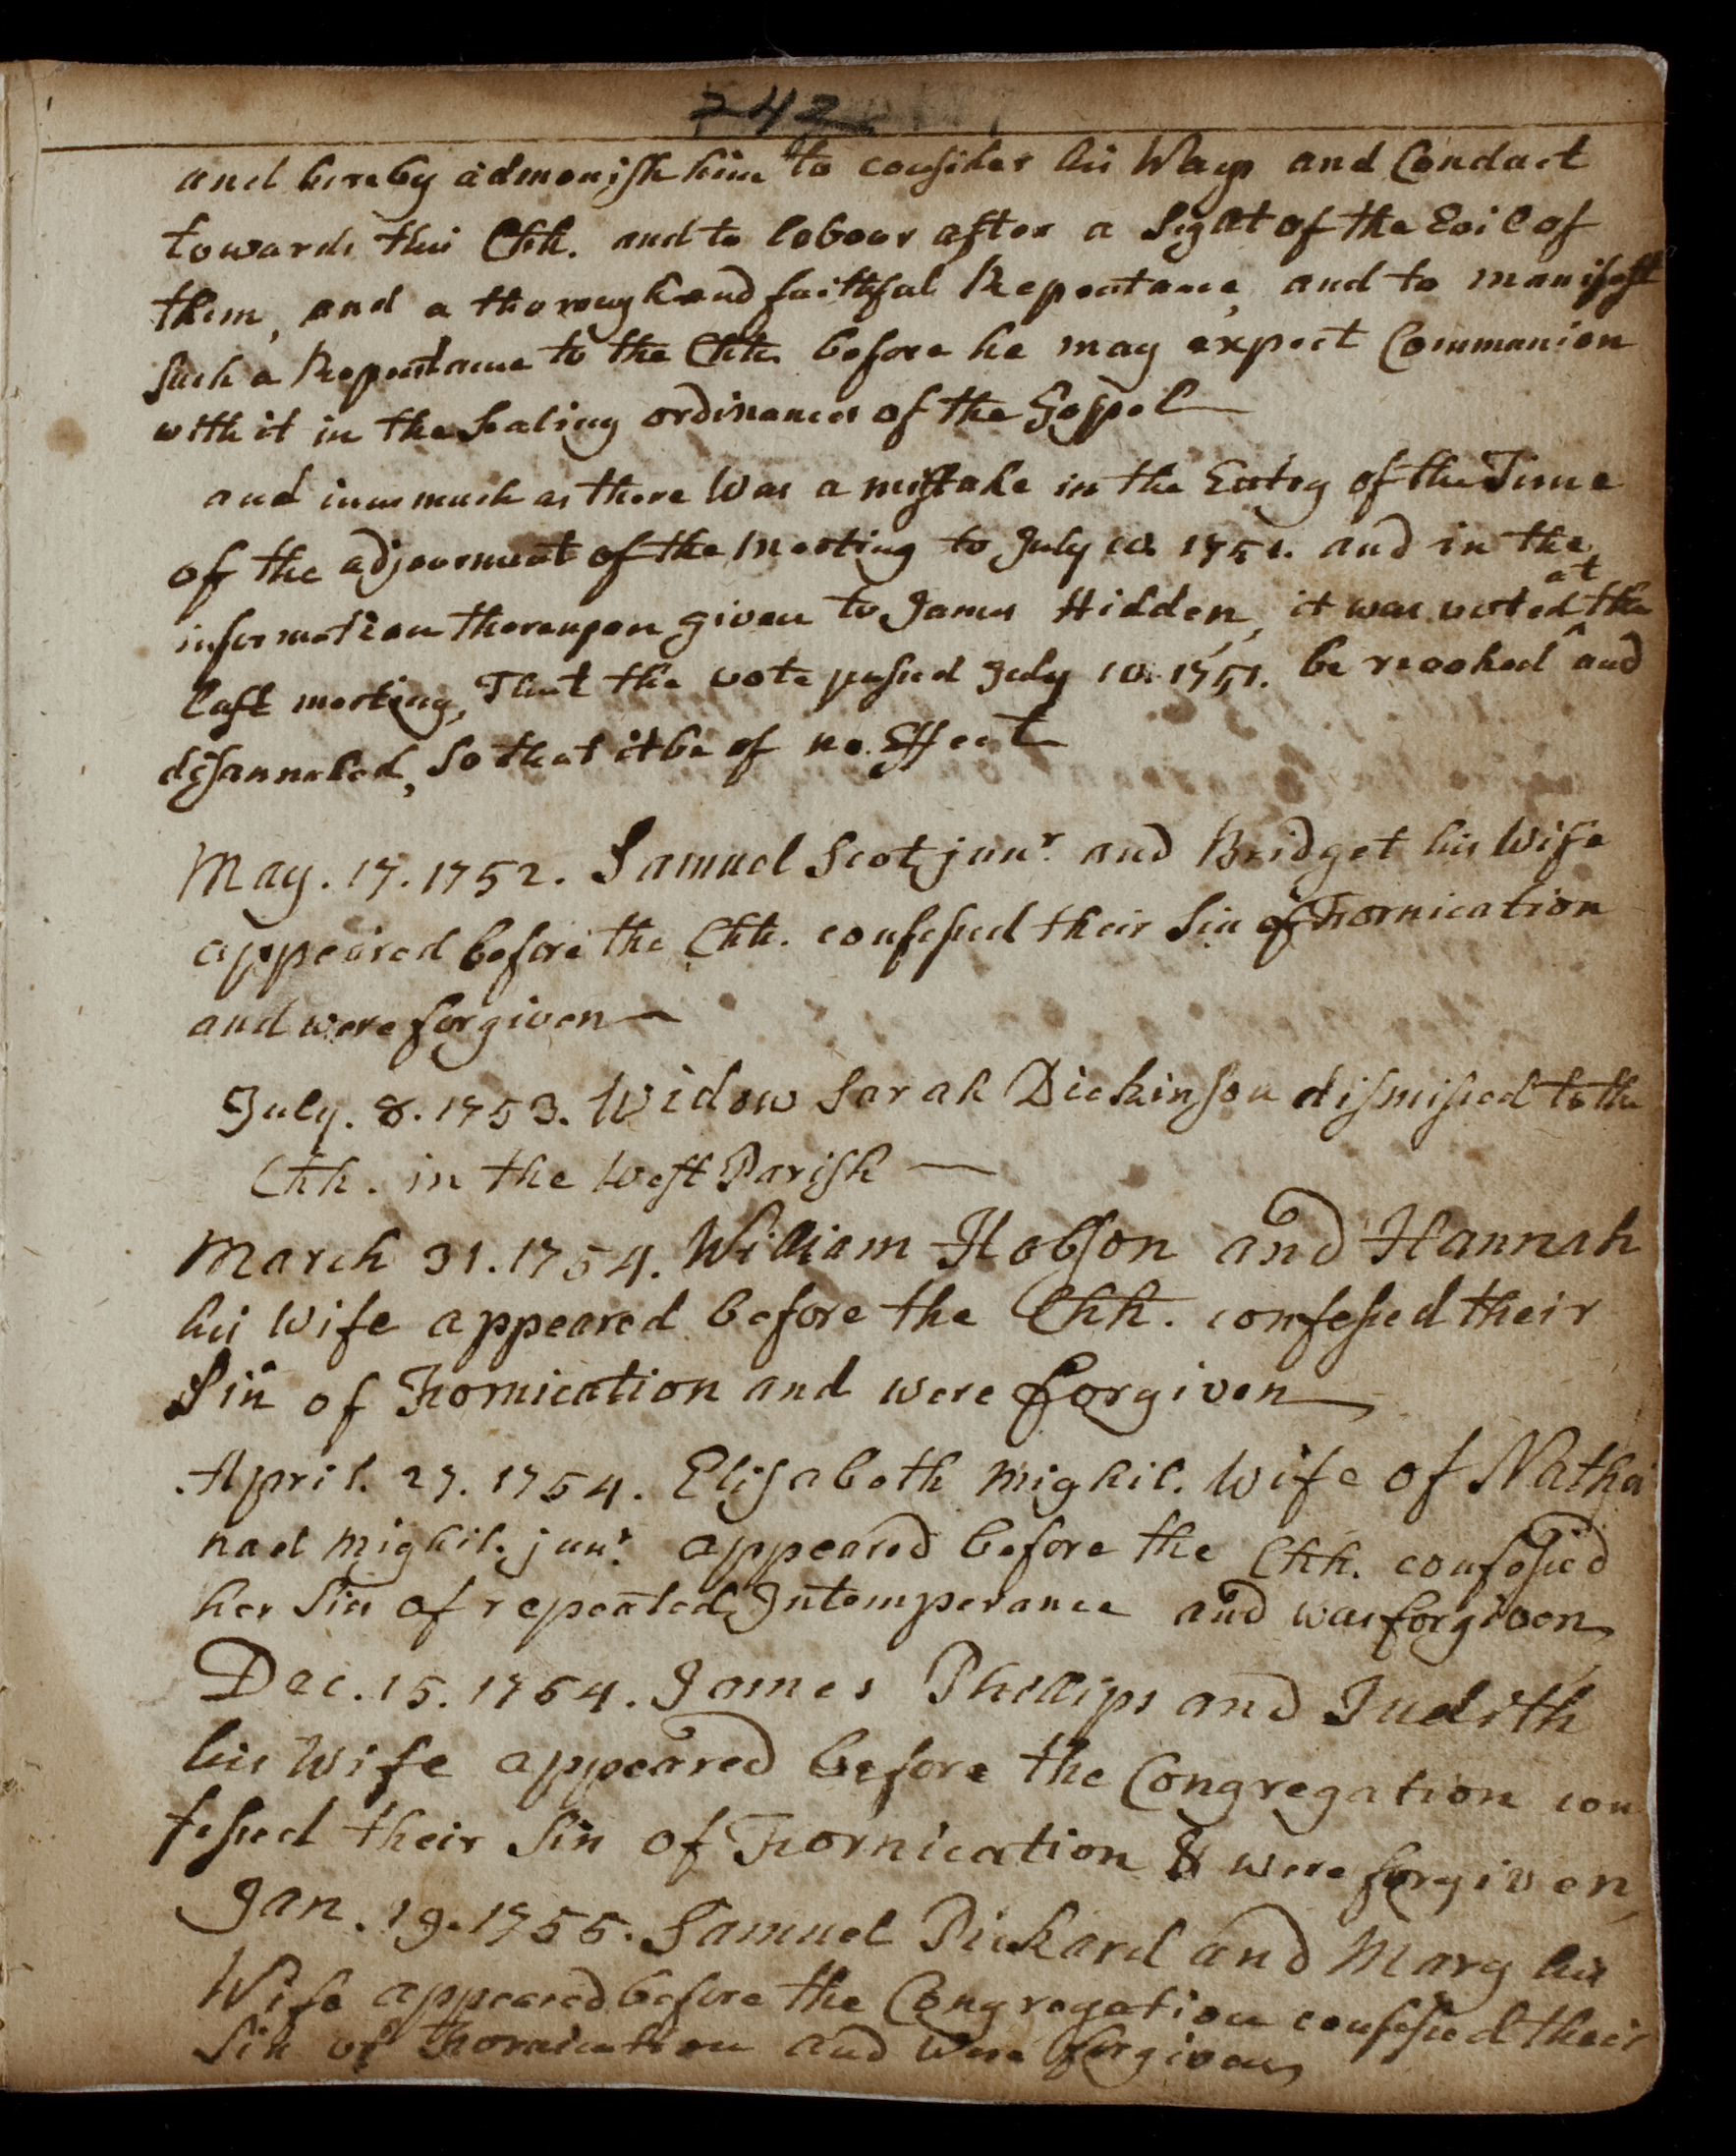 242
and hereby admonish him to consider his Ways and Conduct
towards this Chh. and to labour after a Sight of the Evil of
them, and a thorough and faithful Repentance, and to manifest
Such a Repentance to the Chh. before he may expect Communion
with it in the Sealing ordinances of the Gospel
and inasmuch as there Was a mistake in the Entry of the Time
of the adjournment of the meeting to July 10. 1751. and in the
information thereupon given to James Hidden, it was voted at the
last meeting, That the vote passed July 10. 1751. be revoked and
disannuled, So that it be of no Effect
May. 17. 1752. Samuel Scot junr. and Bridget his Wife
appeared before the Chh. confessed their Sin of Fornication
and were forgiven
July. 8. 1753. Widow Sarah Dickinson dismissed to the
Chh. in the West Parish
March 31. 1754. William Hobson and Hannah
his Wife appeared before the Chh. confessed their
Sin of Fornication and were forgiven
April. 27. 1754. Elisabeth Mighil. Wife of Natha
nael Mighil. junr. appeared before the Chh. confessed
her Sin of repeated Intemperance and was forgiven
Dec. 15. 1754. James Phillips and Judith
his Wife appeared before the Congregation con
fessed their Sin of Fornication & were forgiven
Jan. 19. 1755. Samuel Pickard and Mary his
Wife appeared before the Congregation confessed their
Sin of Fornication and were forgiven